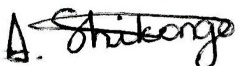 A. Shikongo